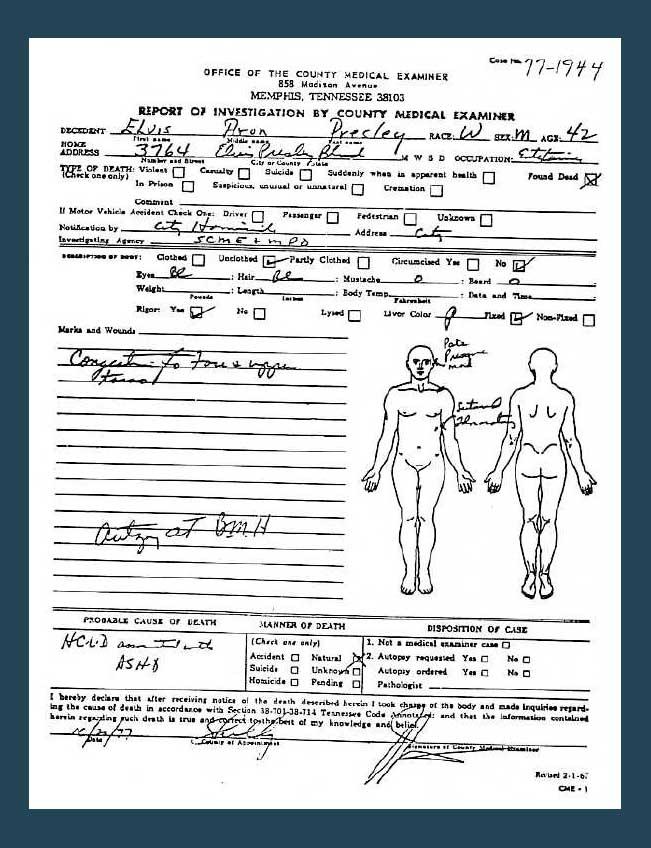 Case No. 77-1944
OFFICE OF THE COUNTY MEDICAL EXAMINER
858 Madison Avenue
MEMPHIS, TENNESSEE 38103
REPORT OF INVESTIGATION BY COUNTY MEDICAL EXAMINER
DECEDENT Elvis Aron Presley RACE: W SEX: M AGE: 42
First name Middle name Last name
HOME ADDRESS 3764 Elvis Presley Blvd M W S D OCCUPATION:
Number and Street City or County State
TYPE OF DEATH: Violent Casualty Suicide Suddenly when in apparent health Found Dead
(Check one only)
In Prison Suspicious, unusual or unnatural Cremation
Comment
If Motor Vehicle Accident Check One: Driver Passenger Pedestrian Unknown
Notification by City Homicide Address City
Investigating Agency SCME + MPD
DESCRIPTION OF BODY: Clothed Unclothed Partly Clothed Circumcised Yes No
Eyes Bl : Hair Bl : Mustache 0 : Beard 0
Weight : Length : Body Temp. : Date and Time
Pounds Inches Fahrenheit
Rigor: Yes No Lysed Livor Color P Fixed Non-Fixed
Marks and Wounds
Congestion to face & upper
torso
Autopsy at BMH
PROBABLE CAUSE OF DEATH MANNER OF DEATH DISPOSITION OF CASE
HCVD associated with
ASHD
(Check one only)
Accident Natural
Suicide Unknown
Homicide Pending
1. Not a medical examiner case
2. Autopsy requested Yes No
Autopsy ordered Yes No
Pathologist
I hereby declare that after receiving notice of the death described herein I took charge of the body and made inquiries regard-
ing the cause of death in accordance with Section 38-701-38-714 Tennessee Code Annotated; and that the information contained
herein regarding such death is true and correct to the best of my knowledge and belief.
Date County of Appointment Signature of County Medical Examiner
Revised 2-1-67
CME - 1